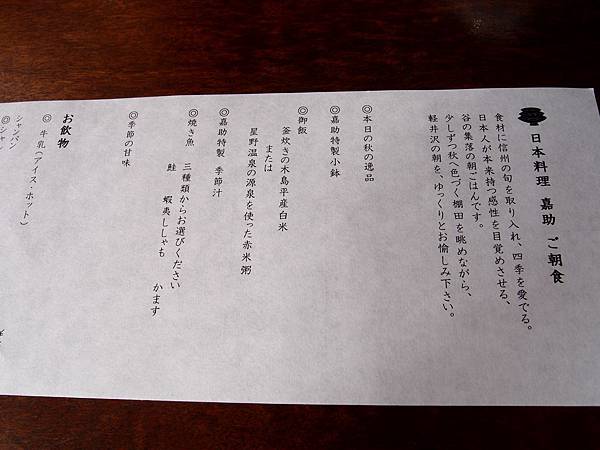 日本料理 嘉助 ご朝食
食材に信州の旬を取り入れ、四季を愛でる。
日本人が本来持つ感性を目覚めさせる、
谷の集落の朝ごはんです。
少しずつ秋へ色づく棚田を眺めながら、
軽井沢の朝を、ゆっくりとお愉しみ下さい。
◎本日の秋の逸品
◎嘉助特製小鉢
◎御飯
釜炊きの木島平産白米
または
星野温泉の源泉を使った赤米粥
◎嘉助特製 季節汁
◎焼き魚 三種類からお選びください
鮭 蝦夷ししゃも かます
◎季節の甘味
お飲物
◎ 牛乳(アイス・ホット)
シャンパン
◎シャ